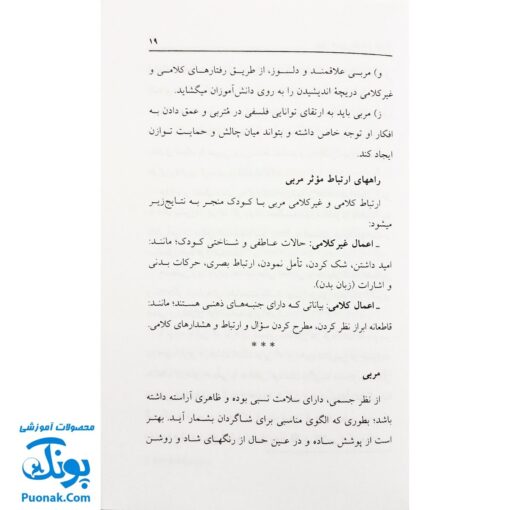 ۱۹
و) مربی علاقمند و دلسوز، از طریق رفتارهای کلامی و
غیرکلامی دریچۀ اندیشیدن را به روی دانش‌آموزان میگشاید.
ز) مربی باید به ارتقای توانایی فلسفی در مُتربی و عمق دادن به
افکار او توجه خاص داشته و بتواند میان چالش و حمایت توازن
ایجاد کند.
راههای ارتباط مؤثر مربی
ارتباط کلامی و غیرکلامی مربی با کودک منجر به نتایج‌زیر
میشود:
ـ اعمال غیرکلامی: حالات عاطفی و شناختی کودک؛ مانند:
امید داشتن، شک کردن، تأمل نمودن، ارتباط بصری، حرکات بدنی
و اشارات (زبان بدن).
ـ اعمال کلامی: بیاناتی که دارای جنبه‌های ذهنی هستند؛ مانند:
قاطعانه ابراز نظر کردن، مطرح کردن سؤال و ارتباط و هشدارهای کلامی.
* * *
مربی
از نظر جسمی، دارای سلامت نسبی بوده و ظاهری آراسته داشته
باشد؛ بطوری که الگوی مناسبی برای شاگردان بشمار آید. بهتر
است از پوشش ساده و در عین حال از رنگهای شاد و روشن
محصولات آموزشی
پونک
Puonak.Com